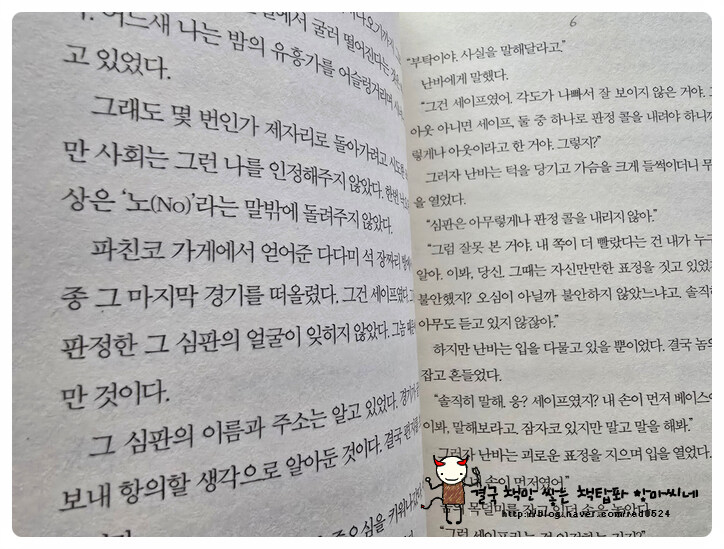 어느새 나는 밤의 유흥가를 어슬렁거리며
고 있었다.
그래도 몇 번인가 제자리로 돌아가려고
만 사회는 그런 나를 인정해주지 않았다. 한번
상은 ‘노(No)’라는 말밖에 돌려주지 않았다.
파친코 가게에서 얻어준 다다미 석 장짜리
종 그 마지막 경기를 떠올렸다. 그건 세이프였다.
판정한 그 심판의 얼굴이 잊히지 않았다. 그놈
만 것이다.
그 심판의 이름과 주소는 알고 있었다.
보내 항의할 생각으로 알아둔 것이다. 결국
6
“부탁이야. 사실을 말해달라고.”
난바에게 말했다.
“그건 세이프였어. 각도가 나빠서 잘 보이지 않은 거야.
아웃 아니면 세이프, 둘 중 하나로 판정 콜을 내려야 하니까
렇게나 아웃이라고 한 거야. 그렇지?”
그러자 난바는 턱을 당기고 가슴을 크게 들썩이더니
을 열었다.
“심판은 아무렇게나 판정 콜을 내리지 않아.”
“그럼 잘못 본 거야. 내 쪽이 더 빨랐다는 건 내가
알아. 이봐, 당신. 그때는 자신만만한 표정을 짓고 있었
불안했지? 오심이 아닐까 불안하지 않았느냐고.
아무도 듣고 있지 않잖아.”
하지만 난바는 입을 다물고 있을 뿐이었다. 결국 놈의
잡고 흔들었다.
“솔직히 말해. 응? 세이프였지? 내 손이 먼저
이봐, 말해보라고. 잠자코 있지만 말고 말을 해봐.”
그러자 난바는 괴로운 표정을 지으며 입을 열었다.
손이 먼저였어.”
결국 책만 쌓는 책탑파 항마씨네
http://blog.naver.com/red0524